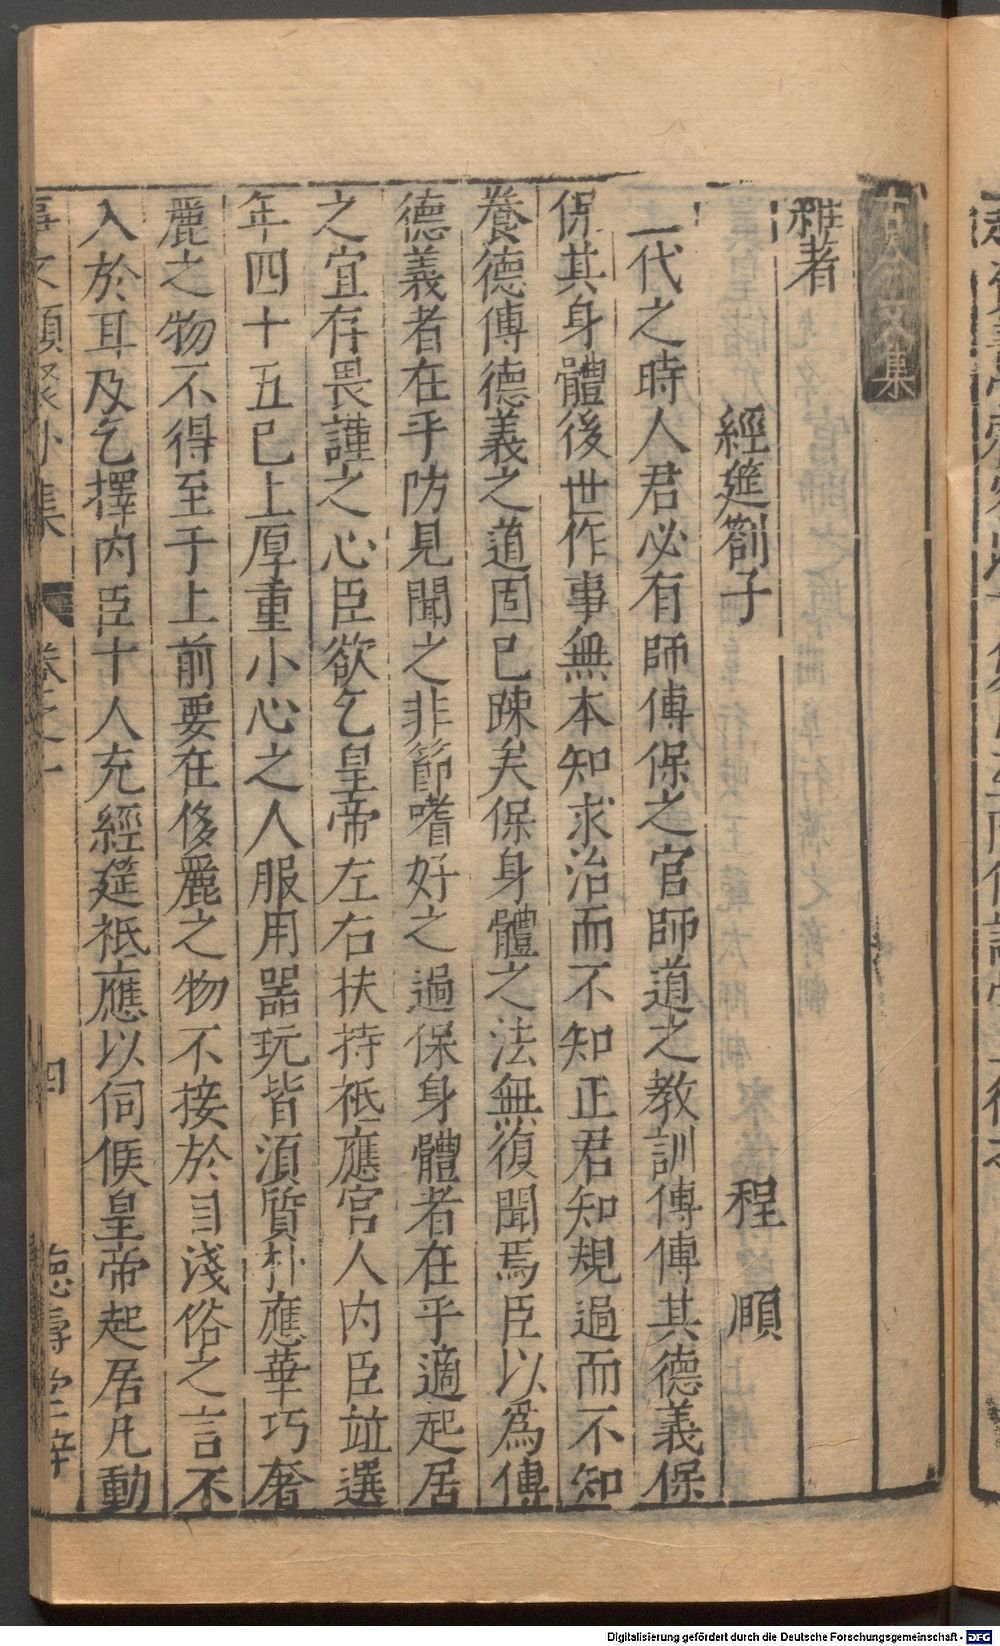 古今文集
雜著
經筵劄子 程頤
三代之時人君必有師傅保之官師道之教訓傅傅其德義保
保其身體後世作事無本知求治而不知正君知規過而不知
養德傅德義之道固已踈矣保身體之法無復聞焉臣以為傅
德義者在乎防見聞之非節嗜好之過保身體者在乎適起居
之宜存畏謹之心臣欲乞皇帝左右扶持祗應宮人内臣並選
年四十五已上厚重小心之人服用器玩皆須質朴應華巧奢
麗之物不得至于上前要在侈麗之物不接於目淺俗之言不
入於耳及乞擇内臣十人充經筵祗應以伺候皇帝起居凡動
事文類聚外集 卷之一 四 德壽堂梓
Digitalisierung gefördert durch die Deutsche Forschungsgemeinschaft - DFG